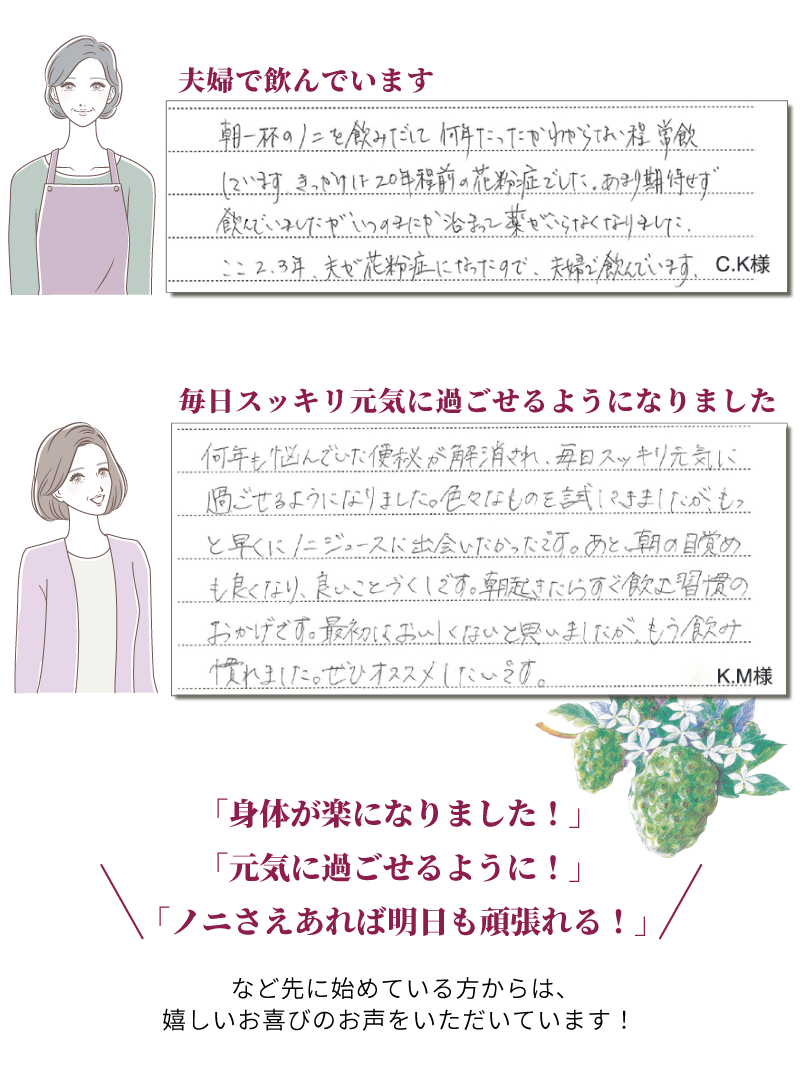 夫婦で飲んでいます
朝一杯のノニを飲みだして何年たったかわからない程常飲
しています。きっかけは20年程前の花粉症でした。あまり期待せず
飲んでいましたがいつのまにか治まって薬がいらなくなりました。
ここ2、3年、夫が花粉症になったので、夫婦で飲んでいます。
C.K様
毎日スッキリ元気に過ごせるようになりました
何年も悩んでいた便秘が解消され、毎日スッキリ元気に
過ごせるようになりました。色々なものを試してきましたが、もっ
と早くにノニジュースに出会いたかったです。あと、朝の目覚め
も良くなり、良いことづくしです。朝起きたらすぐ飲む習慣の
おかげです。最初はおいしくないと思いましたが、もう飲み
慣れました。ぜひオススメしたいです。
K.M様
「身体が楽になりました！」
「元気に過ごせるように！」
「ノニさえあれば明日も頑張れる！」
など先に始めている方からは、
嬉しいお喜びのお声をいただいています！